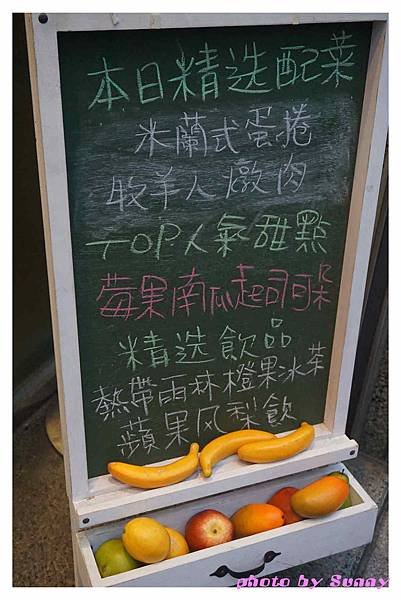 本日精选配菜
米蘭式蛋捲
牧羊人燉肉
TOP人氣甜點
莓果南瓜起司朵
精选飲品
熱帶雨林橙果冰茶
蘋果风梨飲
photo by Sunny